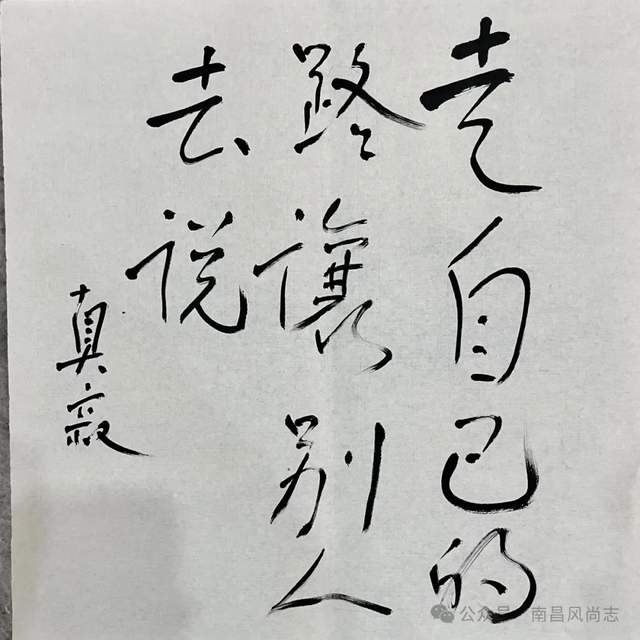 走自己的
路讓别人
去说
真寂
公众号·南昌风尚志